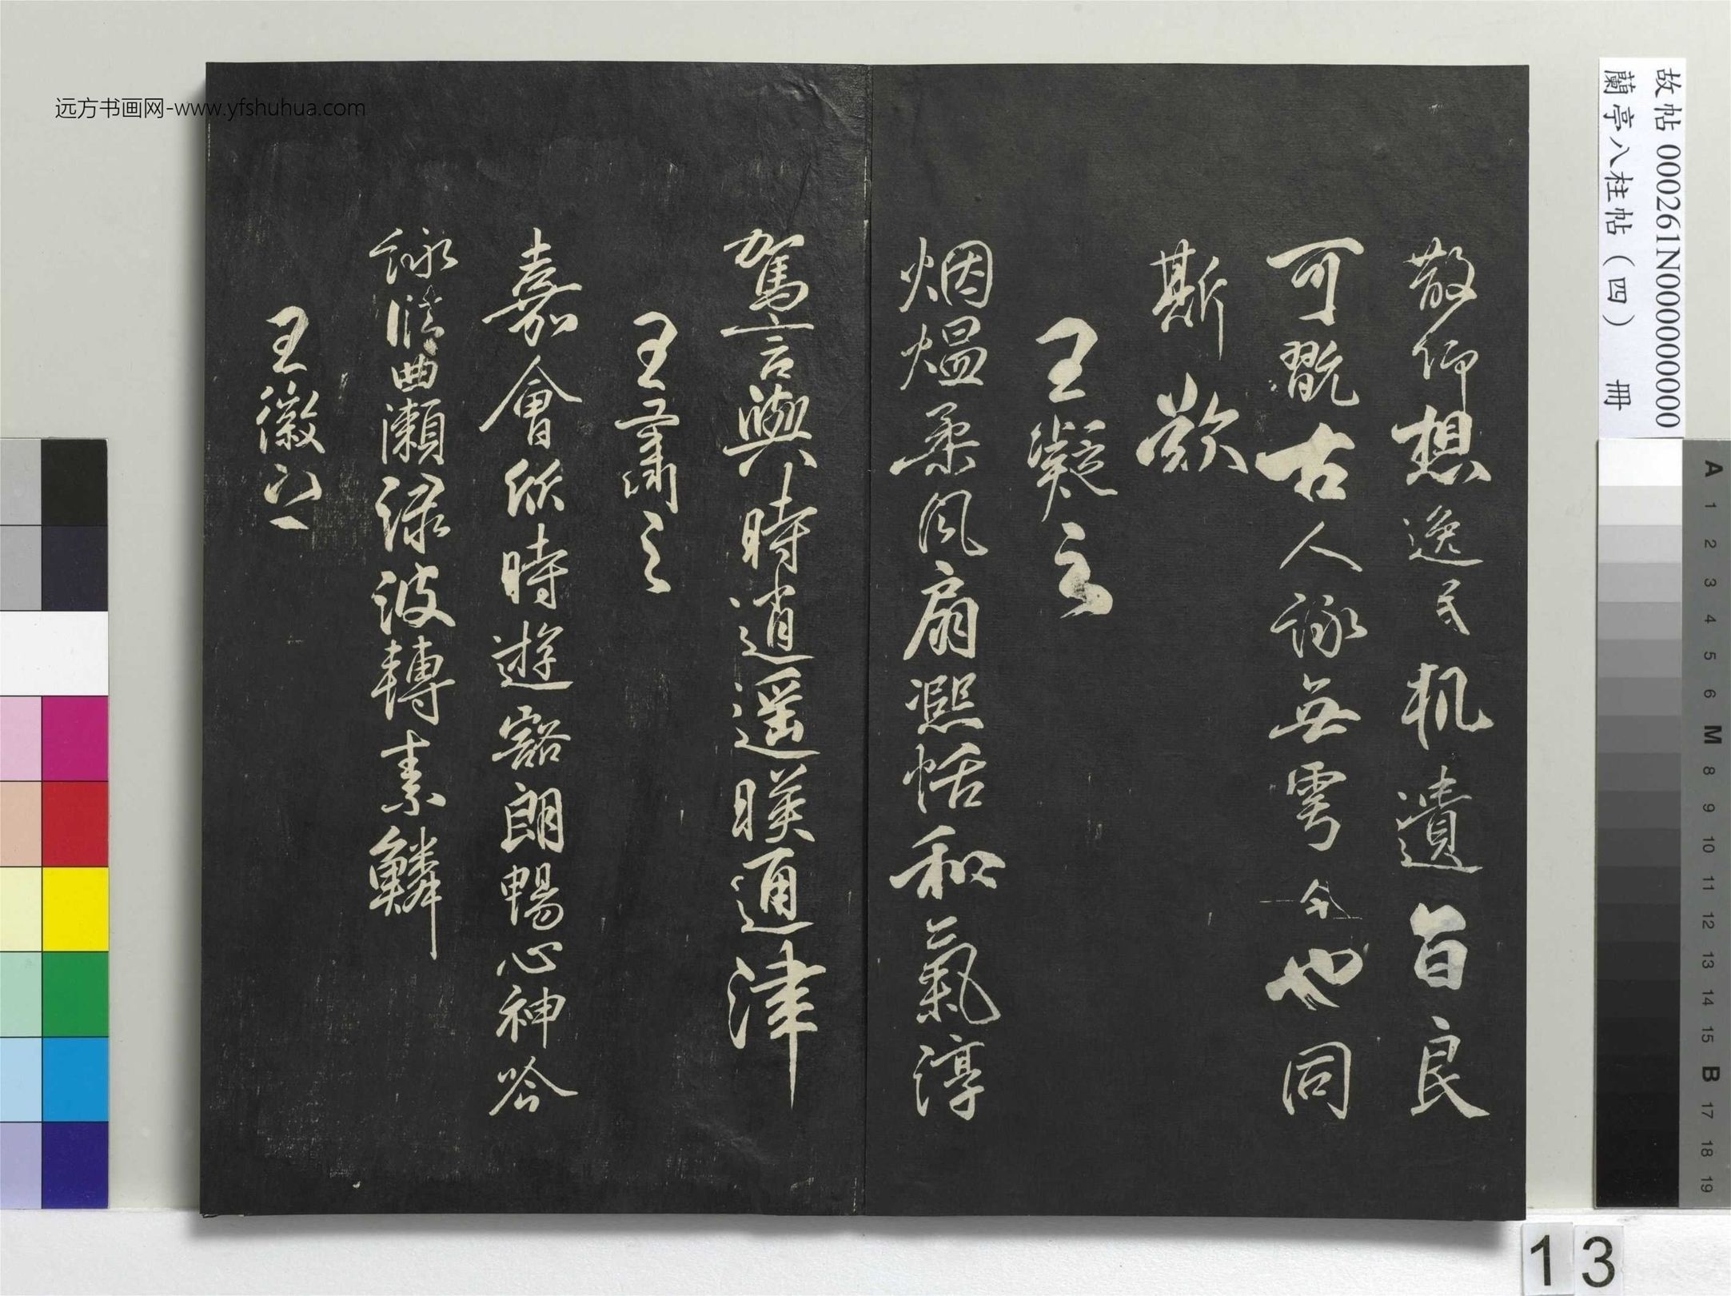 散仰想逸民軌遺旨良
可翫古人詠舞雩今也同
斯歡
王凝之
烟熅柔風扇熙恬和氣淳
駕言興時逍遥映通津
王肅之
嘉會欣時遊豁朗暢心神吟
詠曲瀨淥波轉素鱗
王徽之
远方书画网-www.yfshuhua.com
故帖 000261N000000000
蘭亭八柱帖（四） 冊
A 1 2 3 4 5 6 M 8 9 10 11 12 13 14 15 B 17 18 19
13